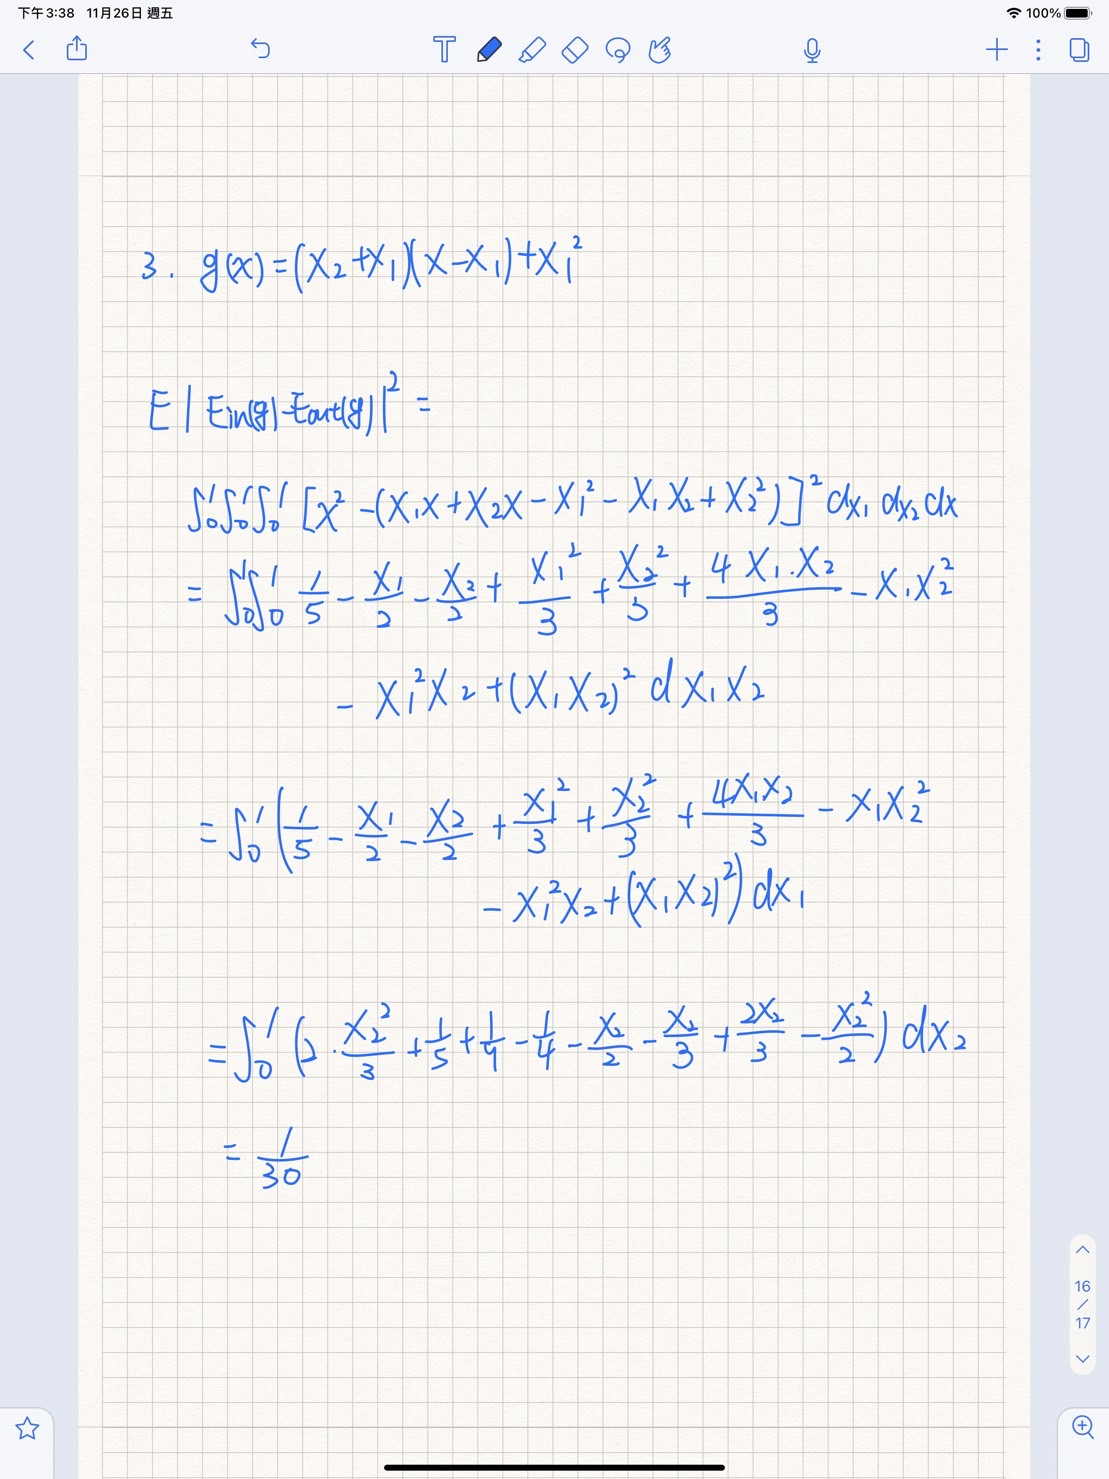 下午3:38 11月26日 週五
100%
T
3. g(x)=(x₂+x₁)(x-x₁)+x₁²
E|Ein(g)-Eout(g)|²=
∫₀¹∫₀¹∫₀¹[x²-(x₁x+x₂x-x₁²-x₁x₂+x₂²)]²dx₁dx₂dx
=∫₀¹∫₀¹ 1/5 - x₁/2 - x₂/2 + x₁²/3 + x₂²/3 + 4x₁·x₂/3 - x₁x₂²
- x₁²x₂+(x₁x₂)² d x₁x₂
=∫₀¹(1/5 - x₁/2 - x₂/2 + x₁²/3 + x₂²/3 + 4x₁x₂/3 - x₁x₂²
- x₁²x₂+(x₁x₂)²)dx₁
=∫₀¹(2·x₂²/3 + 1/5 + 1/9 - 1/4 - x₂/2 - x₂/3 + 2x₂/3 - x₂²/2)dx₂
= 1/30
16
/
17